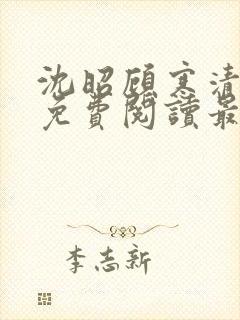 沈昭顾寒清
免費閱讀最
李志新